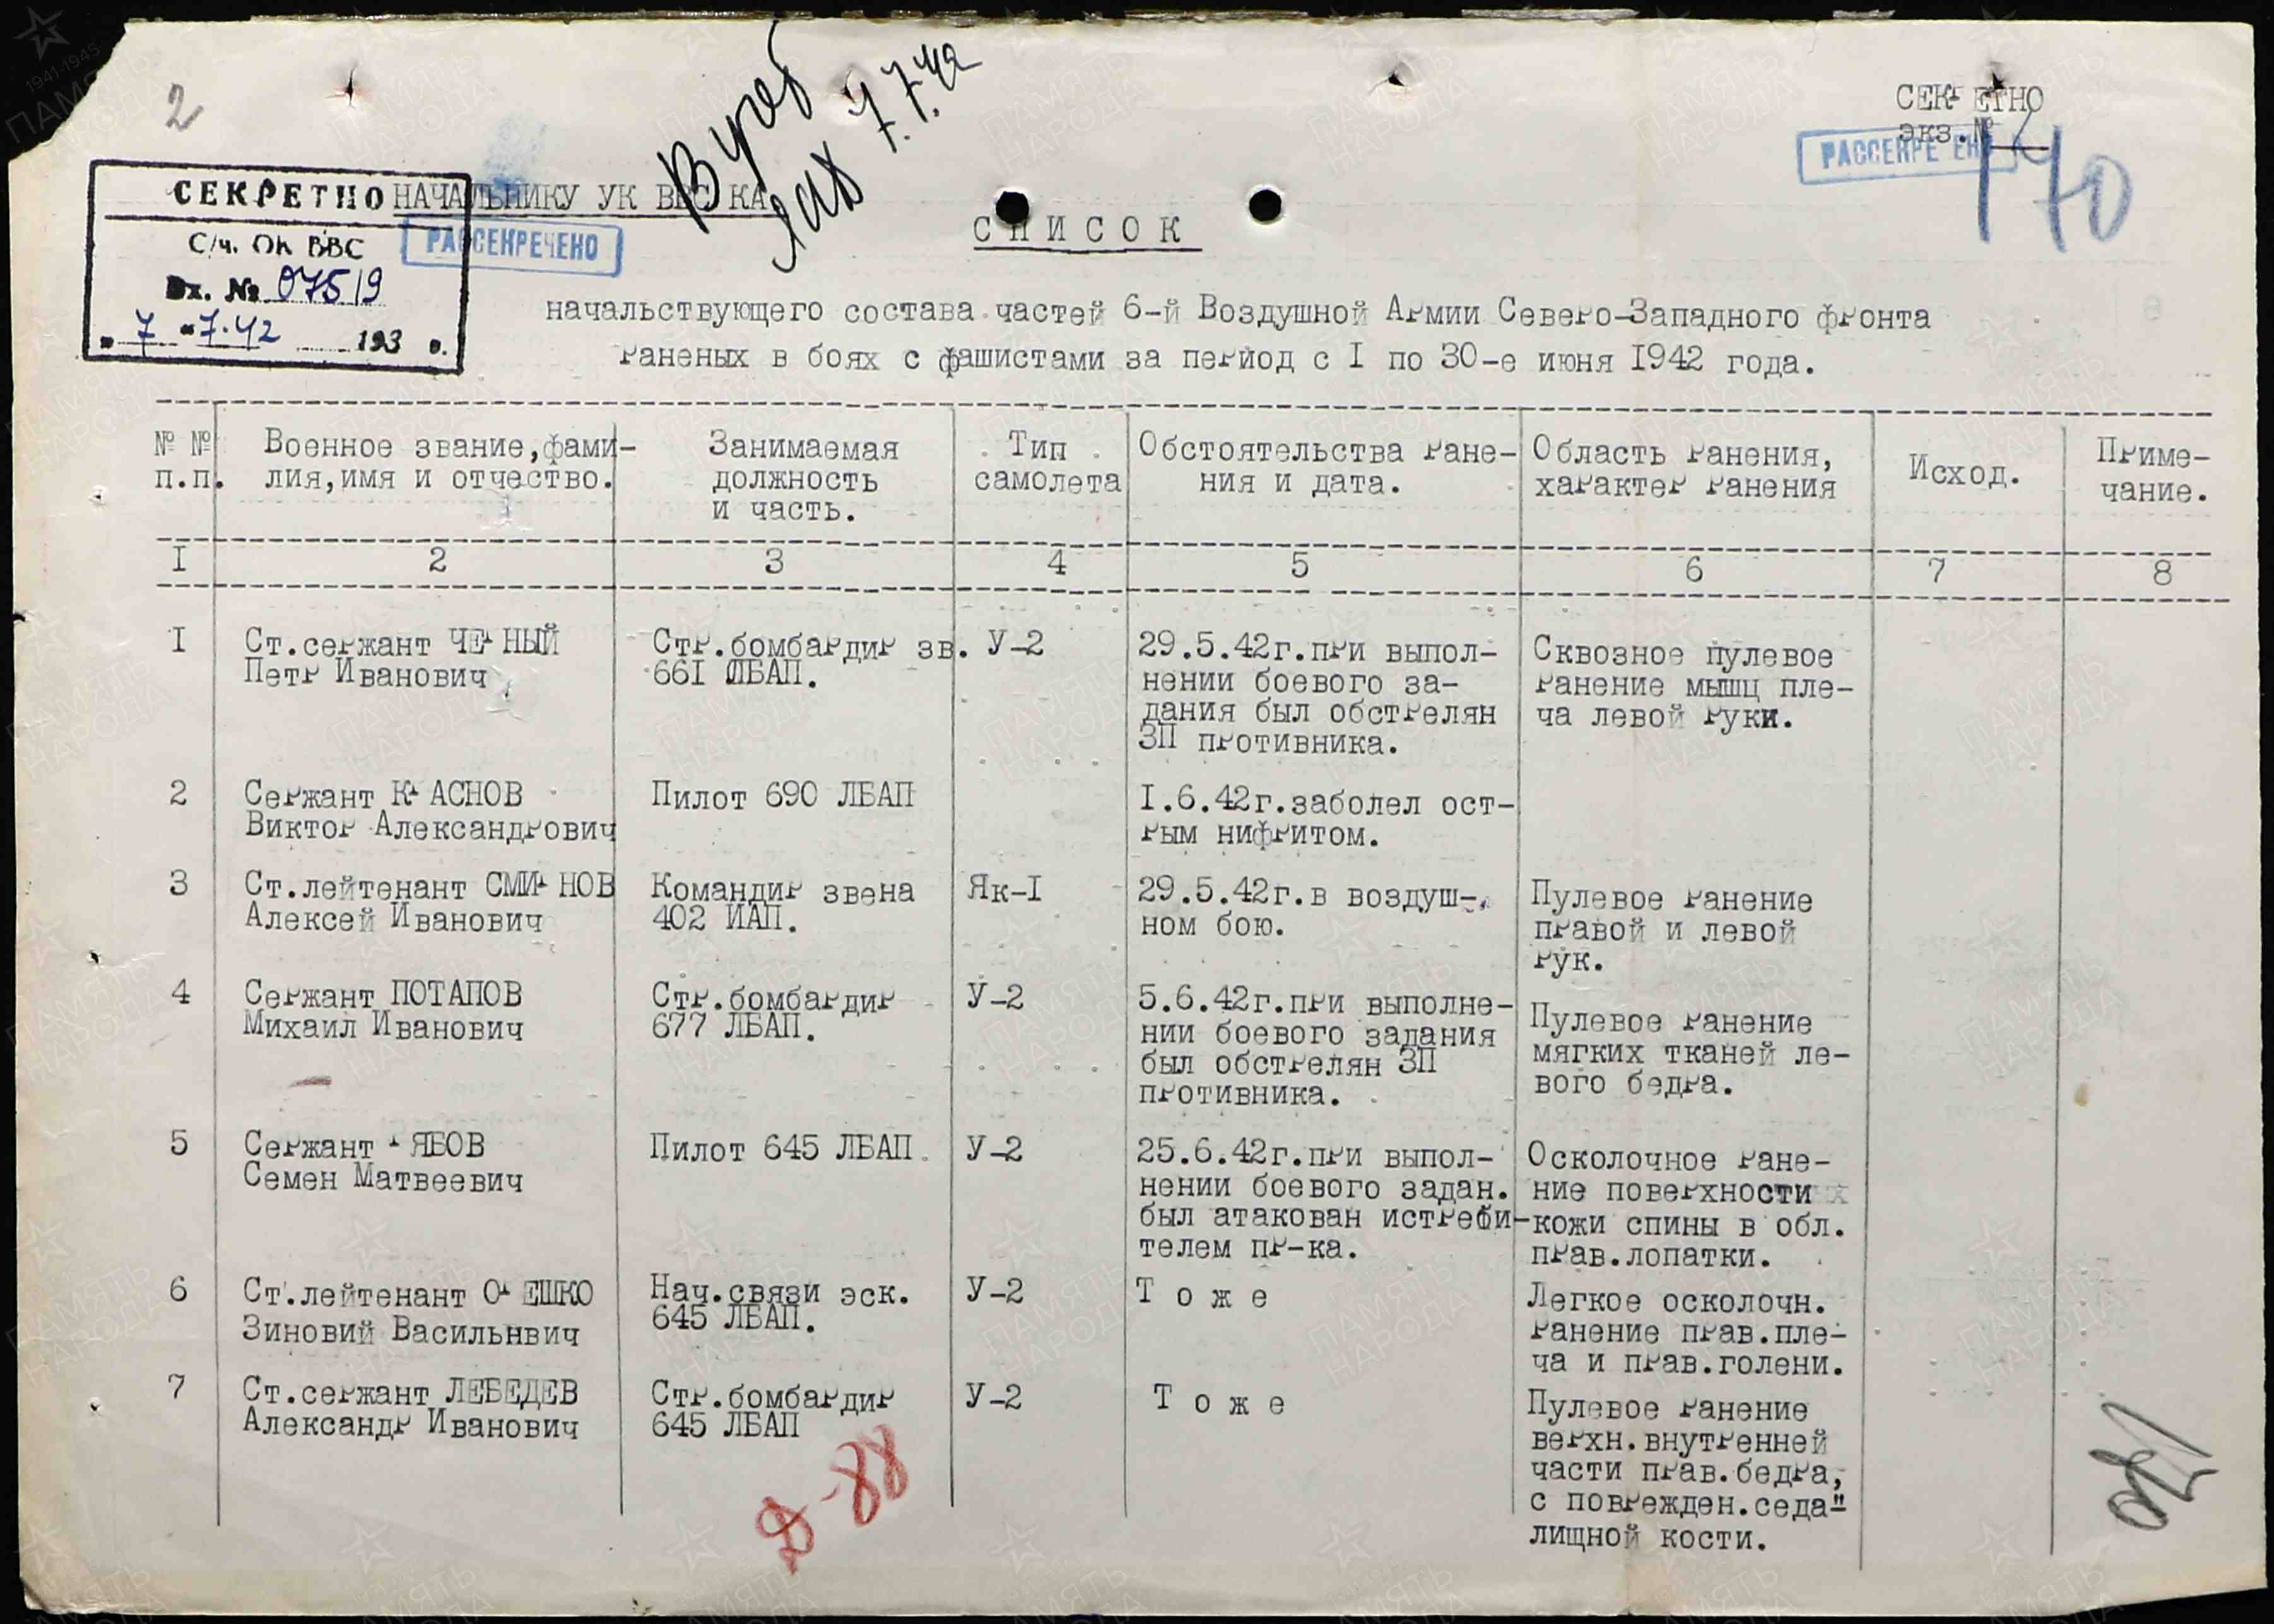 2
СЕКРЕТНО
экз.№
РАССЕКРЕЧЕНО
170
СЕКРЕТНО
С/ч. ОК ВВС
Вх. № 07519
" 7 " 7.42 193 г.
НАЧАЛЬНИКУ УК ВВС КА
РАССЕКРЕЧЕНО
7.7.42
СПИСОК
начальствующего состава частей 6-й Воздушной Армии Северо-Западного фронта
раненых в боях с фашистами за период с I по 30-е июня 1942 года.
№ № п.п.
Военное звание, фами-
лия, имя и отчество.
Занимаемая
должность
и часть.
Тип
самолета
Обстоятельства ране-
ния и дата.
Область ранения,
характер ранения
Исход.
Приме-
чание.
I 2 3 4 5 6 7 8
I
Ст.сержант ЧЕРНЫЙ
Петр Иванович
Стр.бомбардир зв.
661 ЛБАП.
У-2
29.5.42г.при выпол-
нении боевого за-
дания был обстрелян
ЗП противника.
Сквозное пулевое
ранение мышц пле-
ча левой руки.
2
Сержант КРАСНОВ
Виктор Александрович
Пилот 690 ЛБАП
I.6.42г.заболел ост-
рым нифритом.
3
Ст.лейтенант СМИРНОВ
Алексей Иванович
Командир звена
402 ИАП.
Як-I
29.5.42г.в воздуш-
ном бою.
Пулевое ранение
правой и левой
рук.
4
Сержант ПОТАПОВ
Михаил Иванович
Стр.бомбардир
677 ЛБАП.
У-2
5.6.42г.при выполне-
нии боевого задания
был обстрелян ЗП
противника.
Пулевое ранение
мягких тканей ле-
вого бедра.
5
Сержант РЯБОВ
Семен Матвеевич
Пилот 645 ЛБАП.
У-2
25.6.42г.при выпол-
нении боевого задан.
был атакован истреби-
телем пр-ка.
Осколочное ране-
ние поверхности
кожи спины в обл.
прав.лопатки.
6
Ст.лейтенант ОРЕШКО
Зиновий Васильнвич
Нач.связи эск.
645 ЛБАП.
У-2
Т о ж е
Легкое осколочн.
ранение прав.пле-
ча и прав.голени.
7
Ст.сержант ЛЕБЕДЕВ
Александр Иванович
Стр.бомбардир
645 ЛБАП
У-2
Т о ж е
Пулевое ранение
верхн.внутренней
части прав.бедра,
с поврежден.седа-
лищной кости.
Д-88